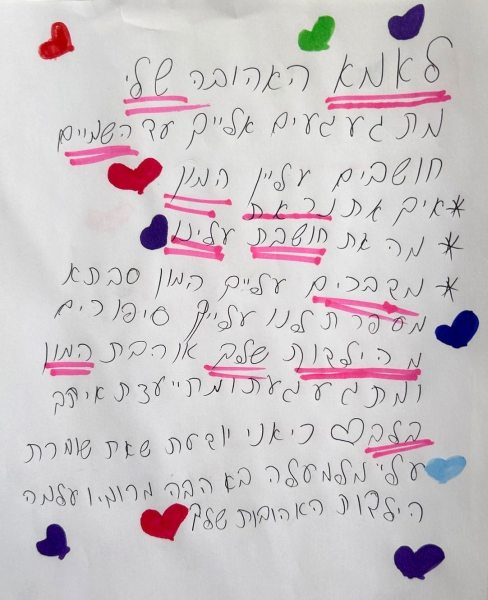 לאמא האהובה שלי
מתגעגעים אלייך עד השמיים
חושבים עליין המון
*איך את נראת
* מה את חושבת עלינו
* מדברים עלייך המון סבתא
מספרת לנו עלייך סיפורים
מהילדות שלך אוהבת המון
ומתגעגעת ומתייעצת איתך
בלב כי אני יודעת שאת שומרת
עליי מלמעלה באהבה מרומי ועלמה
הילדות האהובות שלך